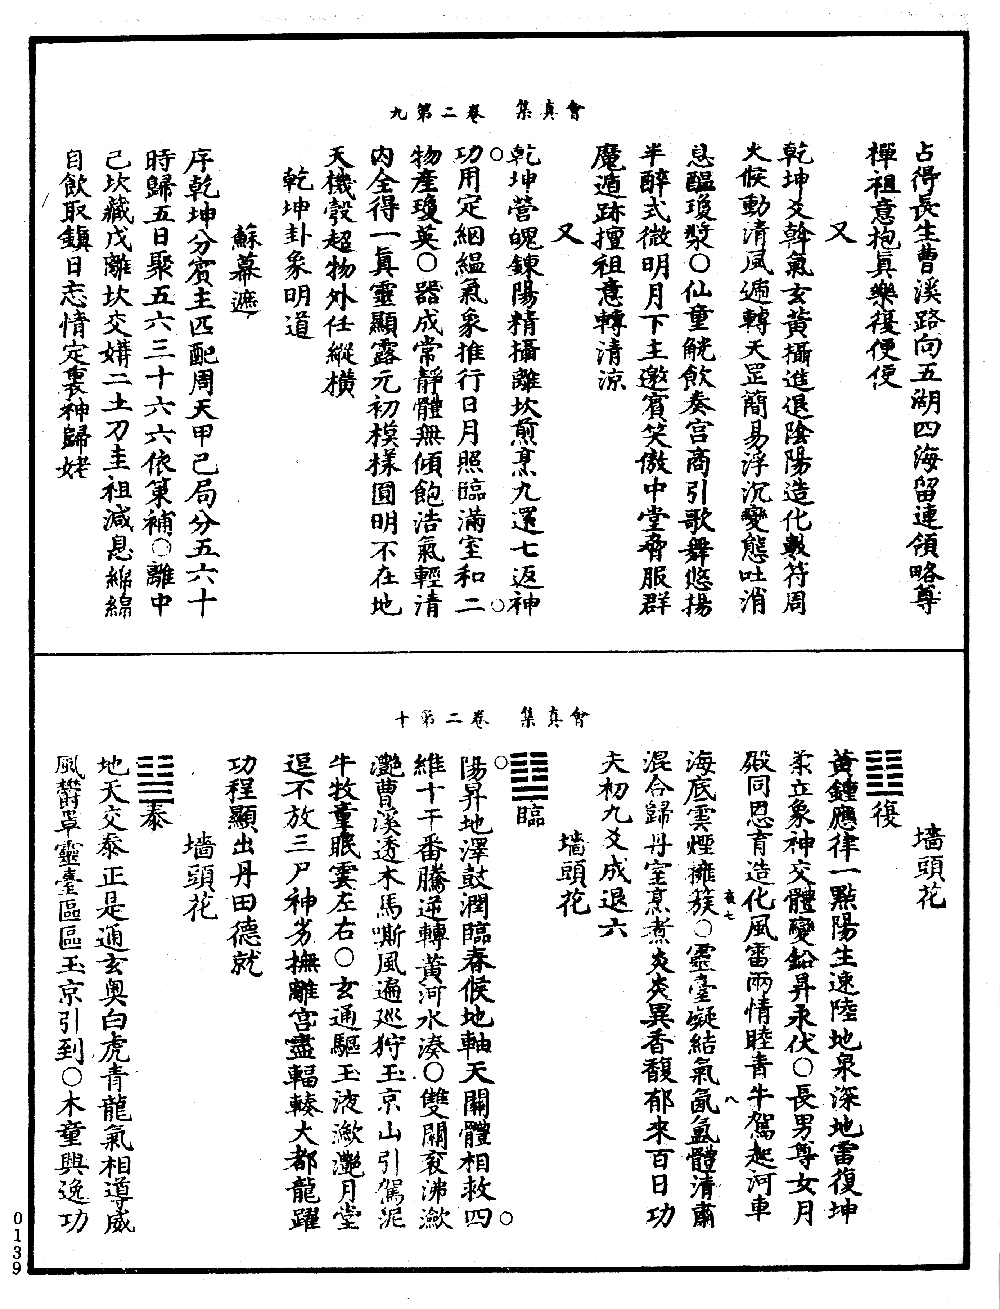 會真集　卷二第九
占得長生曹溪路向五湖四海留連領略尊
禪祖意抱眞樂復便便
又
乾坤爻斡氣玄黃攝進退陰陽造化數符周
火候動清風遍轉天罡簡易浮沉變態吐消
息醖瓊漿○仙童觥飲奏宮商引歌舞悠揚
半醉式微明月下主邀賓笑傲中堂脅服群
魔遁跡擅祖意轉清涼
又
乾坤營魄鍊陽精攝離坎煎烹九還七返神
功用定絪緼氣象推行日月照臨滿室和二
物產瓊英○器成常靜體無傾飽浩氣輕清
內全得一眞靈顯露元初模樣圓明不在地
天機彀超物外任縱橫
乾坤卦象明道
蘇幕遮
序乾坤分賓主匹配周天甲己局分五六十
時歸五日聚五六三十六六依策補○離中
己坎藏戊離坎交媾二土刀圭祖減息綿綿
自飲取鎮日志情定裏神歸姥
會真集　卷二第十
墻頭花
䷗復
黃鍾應律一點陽生速陸地泉深地雷復坤
柔立象神交體變鉛昇汞伏○長男尊女月
殿同恩育造化風雷兩情睦青牛駕起河車
海底雲煙擁簇○靈臺凝結氣氤氳體清肅
混合歸丹室烹煮炎炎異香馥郁來百日功
夫初九爻成退六
墻頭花
䷒臨
陽昇地澤鼓潤臨春候地軸天關體相救四
維十干番騰逆轉黃河水湊○雙關衮沸潄
灔曹溪透木馬嘶風遍巡狩玉京山引駕泥
牛牧童眠雲左右○玄通驅玉液潄灔月堂
逗不放三尸神劣撫離宮盡輻輳大都龍躍
功程顯出丹田德就
墻頭花
䷊泰
地天交泰正是通玄奧白虎青龍氣相導威
風欝罩靈臺區區玉京引到○木童興逸功
0139